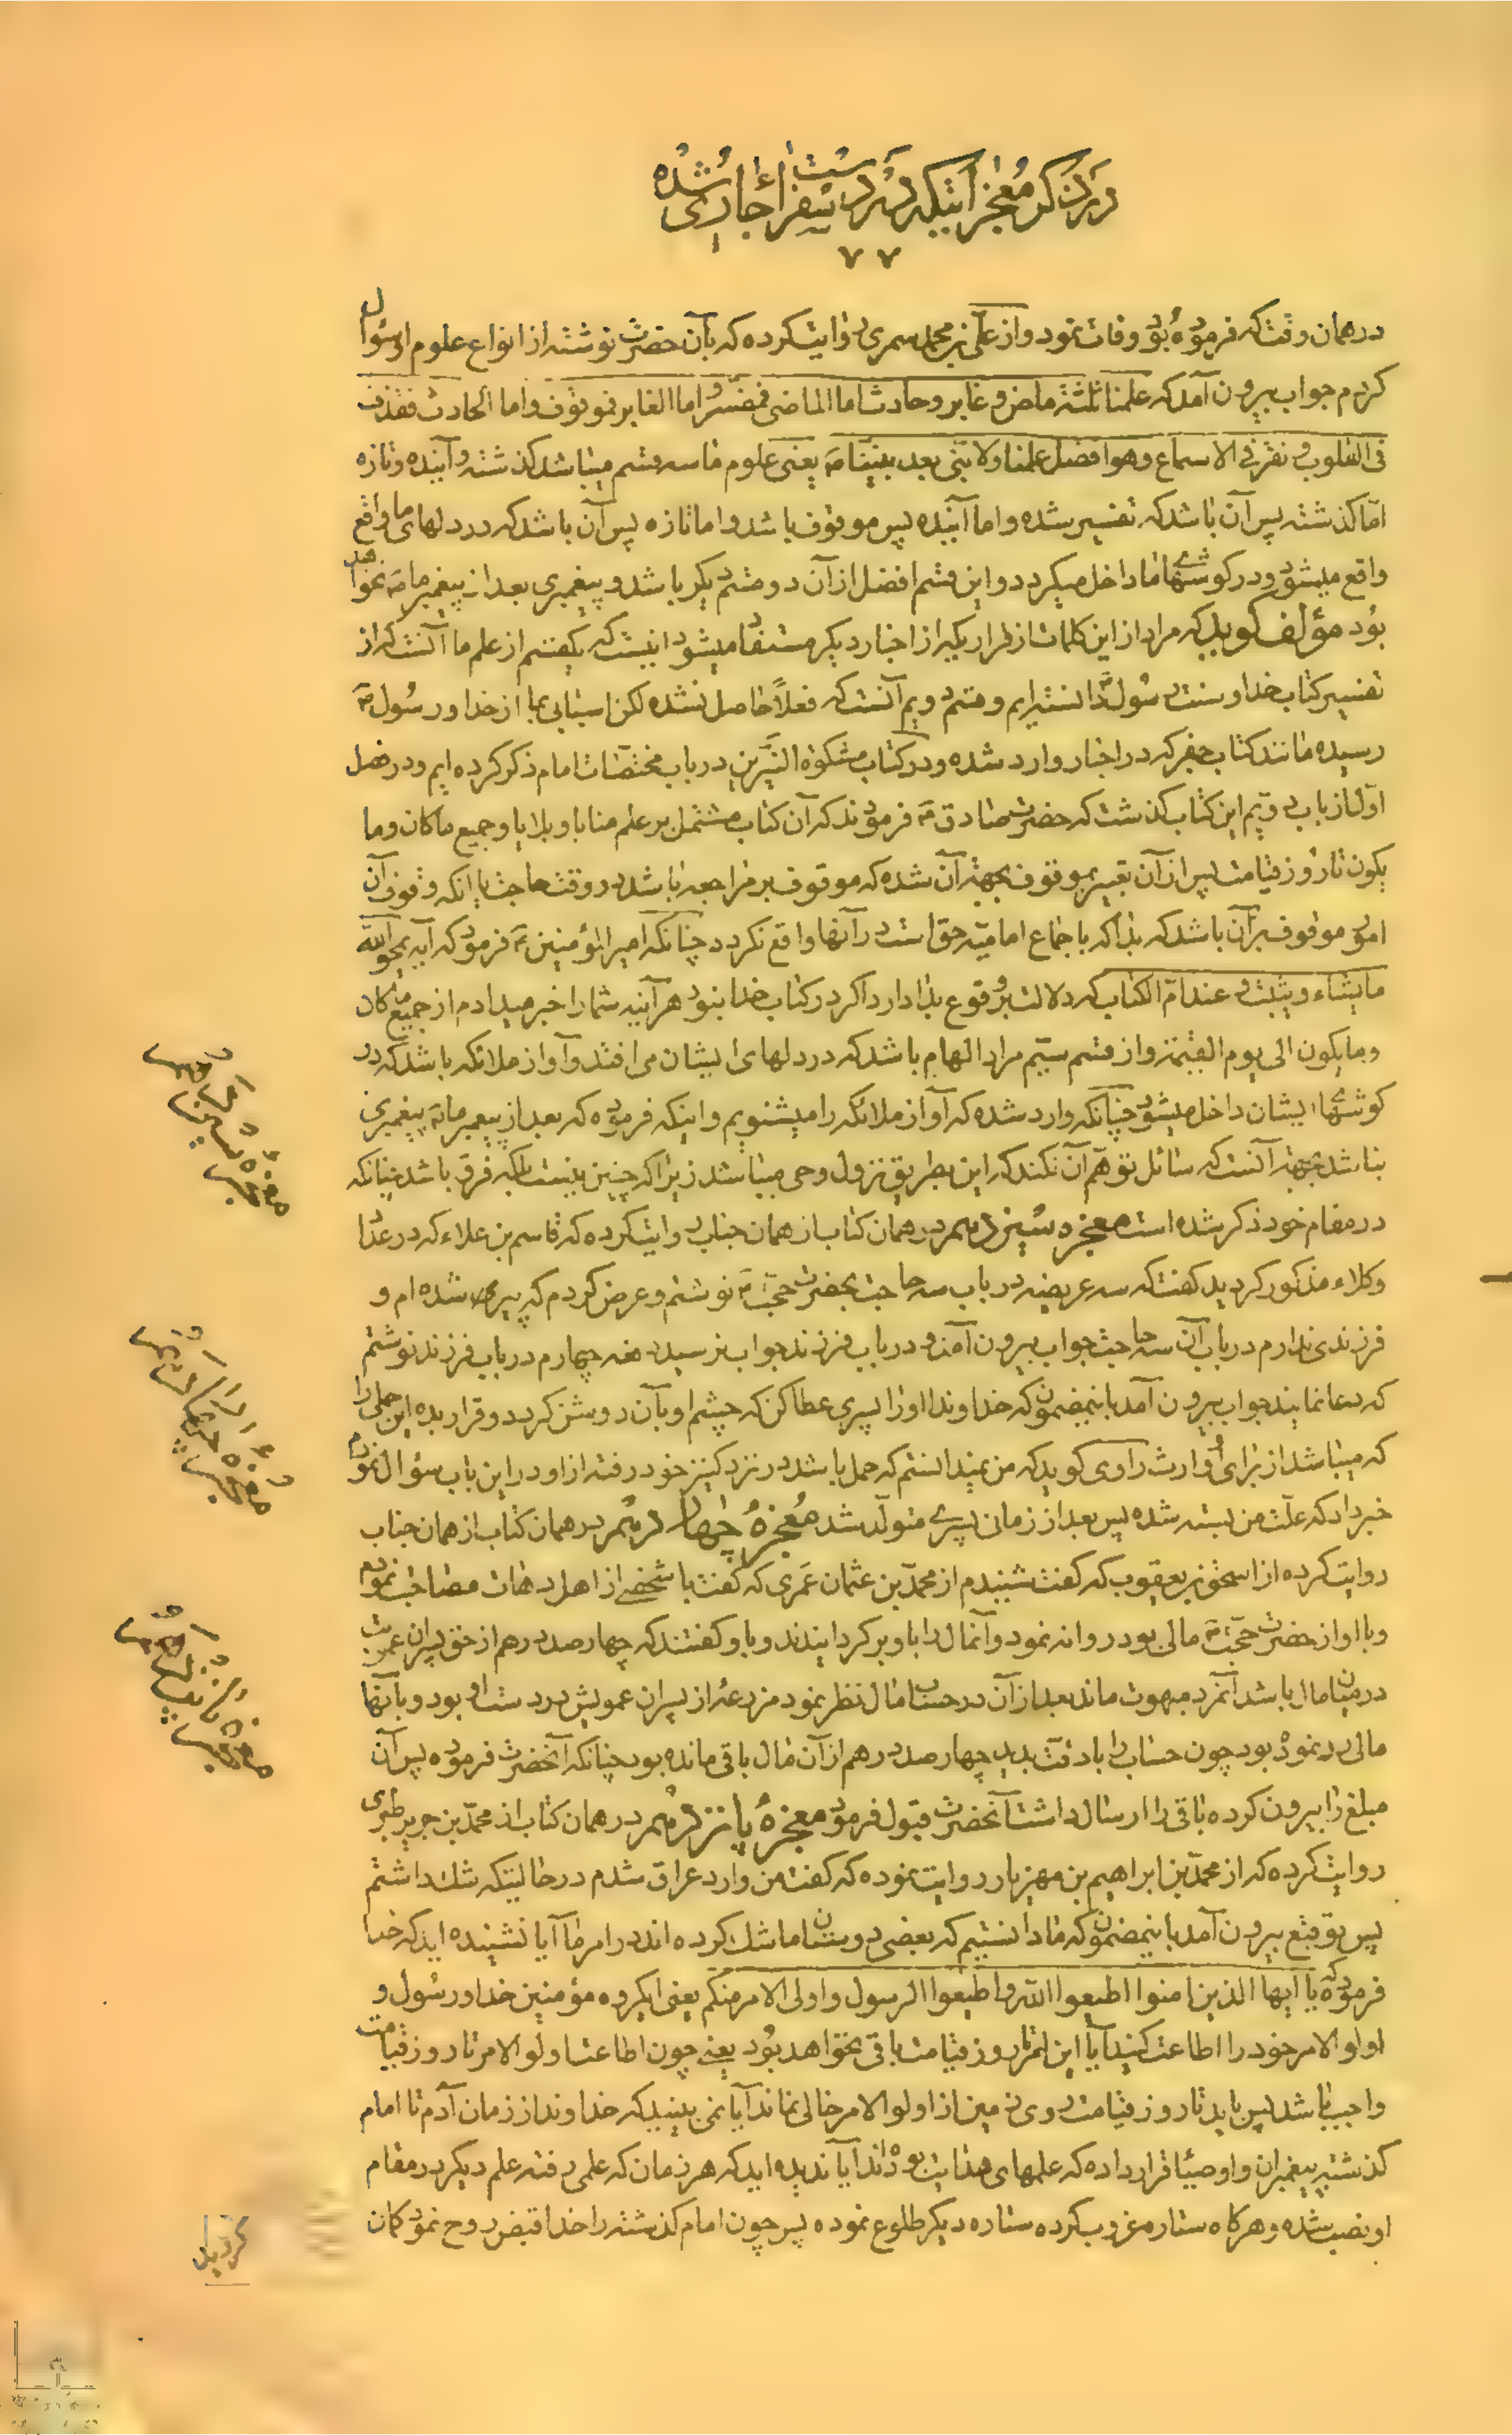 در ذکر معجزاتیکه در دست سفراء جاری شده
۷۷
در همان وقت که فرموده بود وفات نمود و از علی بن محمد سمری روایت کرده که بآن حضرت نوشته از انواع علوم او سؤال
کردم جواب بیرون آمد که علمنا ثلثة ماض و غابر و حادث اما الماضی فمفسر و اما الغابر فموقوف و اما الحادث فقذف
فی القلوب و نقر فی الاسماع و هو افضل علمنا و لا نبی بعد نبینا ص یعنی علوم ما سه قسم میباشد کذشته و آینده و تازه
اما کذشته پس آن باشد که تفسیر شده و اما آینده پس موقوف باشد و اما تازه پس آن باشد که در دلهای ما واقع
واقع میشود و در کوشهای ما داخل میکردد و این قسم افضل از آن دو قسم دیکر باشد و پیغمبری بعد از پیغمبر ما ص نخواهد
بود مؤلف کوید که مراد از این کلمات از قراریکه از اخبار دیکر مستفاد میشود اینست که یکقسم از علم ما آنست که از
تفسیر کتاب خدا و سنت رسول ص دانسته ایم و قسم دویم آنست که فعلاً حاصل نشده لکن اسبابی بما از خدا و رسول ص
رسیده مانند کتاب جفر که در اخبار وارد شده و در کتاب مشکوة النیرین در باب مختصات امام ذکر کرده ایم و در فصل
اول از باب دویم این کتاب کذشت که حضرت صادق ع فرمودند که آن کتاب مشتمل بر علم منایا و بلایا و جمیع ما کان و ما
یکون تا روز قیامت پس از آن تعبیر بموقوف بجهة آن شده که موقوف بر مراجعه باشد در وقت حاجت یا انکه وقوف آن
امور موقوف بر آن باشد که بدا که باجماع امامیه حق است در آنها واقع نکردد چنانکه امیر المؤمنین ع فرمود که آیه یمحو الله
ما یشاء و یثبت و عنده ام الکتاب که دلالت بر وقوع بدا دارد اکر در کتاب خدا نبود هر آینه شما را خبر میدادم از جمیع ما کان
و ما یکون الی یوم القیمة و از قسم سیم مراد الهام باشد که در دلهای ایشان می افتد و آواز ملائکه باشد که در
کوشهای ایشان داخل میشود چنانکه وارد شده که آواز ملائکه را میشنویم و اینکه فرموده که بعد از پیغمبر ما ص پیغمبری
نباشد بجهة آنست که سائل توهم آن نکند که این بطریق نزول وحی میباشد زیرا که چنین نیست بلکه فرق باشد چنانکه
در مقام خود ذکر شده است معجزه سیزدهم در همان کتاب از همان جناب روایت کرده که قاسم بن علاء که در عداد
وکلاء مذکور کردید کفت که سه عریضه در باب سه حاجت بحضرت حجت ع نوشتم و عرض کردم که پیر شده ام و
فرزندی ندارم در باب آن سه حاجت جواب بیرون آمد و در باب فرزند جواب نرسید دفعه چهارم در باب فرزند نوشتم
که دعا نمایند جواب بیرون آمد باینمضمون که خداوندا او را پسری عطا کن که چشم او بآن روشن کردد و قرار بده این حملی را
که میباشد از برای او وارث راوی کوید که من نمیدانستم که حمل باشد در نزد کنیز خود رفته از او در این باب سؤال نمودم
خبر داد که علت من بسته شده پس بعد از زمانی پسری متولد شد معجزه چهاردهم در همان کتاب از همان جناب
روایت کرده از اسحق بن یعقوب که کفت شنیدم از محمد بن عثمان عمری که کفت با شخصی از اهل دهات مصاحب نمودم
و با او از حضرت حجت ع مالی بود روانه نمود و آنمال را باو بر کردانیدند و باو کفتند که چهار صد درهم از حق پسران عمویت
در میان مال باشد آنمرد مبهوت ماند بعد از آن در حساب مال نظر نمود مزرعه از پسران عمویش در دست او بود و بآنها
مالی رد نموده بود چون حساب را با دقت بدید چهار صد درهم از آن مال باقی مانده بود چنانکه آنحضرت فرموده پس آن
مبلغ را بیرون کرده باقی را ارسال داشت آنحضرت قبول فرمود معجزه پانزدهم در همان کتاب از محمد بن جریر طبری
روایت کرده که از محمد بن ابراهیم بن مهزیار روایت نموده که کفت من وارد عراق شدم در حالتیکه شک داشتم
پس توقیع بیرون آمد باینمضمون که ما دانستیم که بعضی دوستان ما شک کرده اند در امر ما آیا نشنیده اید که خدا
فرموده که یا ایها الذین امنوا اطیعوا الله و اطیعوا الرسول و اولی الامر منکم یعنی ایکروه مؤمنین خدا و رسول و
اولو الامر خود را اطاعت کنید آیا این امر تا روز قیامت باقی نخواهد بود یعنی چون اطاعت اولو الامر تا روز قیامت
واجب باشد پس باید تا روز قیامت روی زمین از اولو الامر خالی نماند آیا نمی بینید که خداوند از زمان آدم تا امام
کذشته پیغمبران و اوصیا قرار داده که علمهای هدایت بوده اند آیا ندیده اید که هر زمان که علمی رفته علم دیکر در مقام
او نصب شده و هر کاه ستاره غروب کرده ستاره دیکر طلوع نموده پس چون امام کذشته را خدا قبض روح نمود کمان
معجزه سیزدهم
معجزه چهاردهم
معجزه پانزدهم
کردید